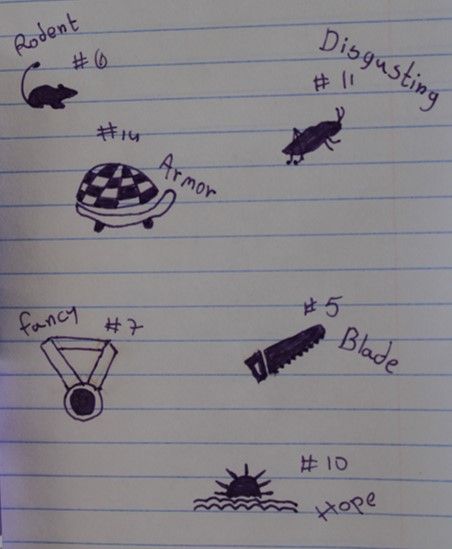 Rodent
#6
Disgusting
#11
#14
Armor
fancy
#7
#5
Blade
#10
Hope